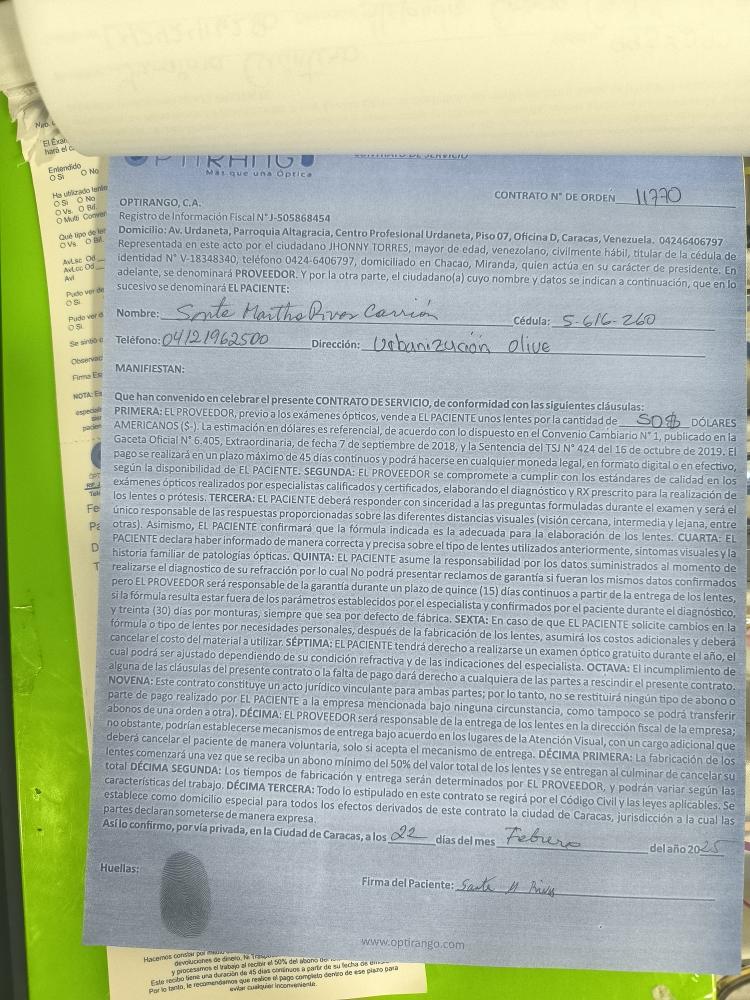 OPTIRANGO
CONTRATO DE SERVICIO
Más que una Óptica
CONTRATO N° DE ORDEN 11770
OPTIRANGO, C.A.
Registro de Información Fiscal N° J-505868454
Domicilio: Av. Urdaneta, Parroquia Altagracia, Centro Profesional Urdaneta, Piso 07, Oficina D, Caracas, Venezuela. 04246406797
Representada en este acto por el ciudadano JHONNY TORRES, mayor de edad, venezolano, civilmente hábil, titular de la cédula de
identidad N° V-18348340, teléfono 0424-6406797, domiciliado en Chacao, Miranda, quien actúa en su carácter de presidente. En
adelante, se denominará PROVEEDOR. Y por la otra parte, el ciudadano(a) cuyo nombre y datos se indican a continuación, que en lo
sucesivo se denominará EL PACIENTE:
Nombre: Sante Martha Rivas Carrión Cédula: 5-616-260
Teléfono: 04121962500 Dirección: Urbanización Olive
MANIFIESTAN:
Que han convenido en celebrar el presente CONTRATO DE SERVICIO, de conformidad con las siguientes cláusulas:
PRIMERA: EL PROVEEDOR, previo a los exámenes ópticos, vende a EL PACIENTE unos lentes por la cantidad de 50$ DÓLARES
AMERICANOS ($-). La estimación en dólares es referencial, de acuerdo con lo dispuesto en el Convenio Cambiario N° 1, publicado en la
Gaceta Oficial N° 6.405, Extraordinaria, de fecha 7 de septiembre de 2018, y la Sentencia del TSJ N° 424 del 16 de octubre de 2019. El
pago se realizará en un plazo máximo de 45 días continuos y podrá hacerse en cualquier moneda legal, en formato digital o en efectivo,
según la disponibilidad de EL PACIENTE. SEGUNDA: EL PROVEEDOR se compromete a cumplir con los estándares de calidad en los
exámenes ópticos realizados por especialistas calificados y certificados, elaborando el diagnóstico y RX prescrito para la realización de
los lentes o prótesis. TERCERA: EL PACIENTE deberá responder con sinceridad a las preguntas formuladas durante el examen y será el
único responsable de las respuestas proporcionadas sobre las diferentes distancias visuales (visión cercana, intermedia y lejana, entre
otras). Asimismo, EL PACIENTE confirmará que la fórmula indicada es la adecuada para la elaboración de los lentes. CUARTA: EL
PACIENTE declara haber informado de manera correcta y precisa sobre el tipo de lentes utilizados anteriormente, síntomas visuales y la
historia familiar de patologías ópticas. QUINTA: EL PACIENTE asume la responsabilidad por los datos suministrados al momento de
realizarse el diagnostico de su refracción por lo cual No podrá presentar reclamos de garantía si fueran los mismos datos confirmados
pero EL PROVEEDOR será responsable de la garantía durante un plazo de quince (15) días continuos a partir de la entrega de los lentes,
si la fórmula resulta estar fuera de los parámetros establecidos por el especialista y confirmados por el paciente durante el diagnóstico,
y treinta (30) días por monturas, siempre que sea por defecto de fábrica. SEXTA: En caso de que EL PACIENTE solicite cambios en la
fórmula o tipo de lentes por necesidades personales, después de la fabricación de los lentes, asumirá los costos adicionales y deberá
cancelar el costo del material a utilizar. SÉPTIMA: EL PACIENTE tendrá derecho a realizarse un examen óptico gratuito durante el año, el
cual podrá ser ajustado dependiendo de su condición refractiva y de las indicaciones del especialista. OCTAVA: El incumplimiento de
alguna de las cláusulas del presente contrato o la falta de pago dará derecho a cualquiera de las partes a rescindir el presente contrato.
NOVENA: Este contrato constituye un acto jurídico vinculante para ambas partes; por lo tanto, no se restituirá ningún tipo de abono o
parte de pago realizado por EL PACIENTE a la empresa mencionada bajo ninguna circunstancia, como tampoco se podrá transferir
abonos de una orden a otra). DÉCIMA: EL PROVEEDOR será responsable de la entrega de los lentes en la dirección fiscal de la empresa;
no obstante, podrían establecerse mecanismos de entrega bajo acuerdo en los lugares de la Atención Visual, con un cargo adicional que
deberá cancelar el paciente de manera voluntaria, solo si acepta el mecanismo de entrega. DÉCIMA PRIMERA: La fabricación de los
lentes comenzará una vez que se reciba un abono mínimo del 50% del valor total de los lentes y se entregan al culminar de cancelar su
total DÉCIMA SEGUNDA: Los tiempos de fabricación y entrega serán determinados por EL PROVEEDOR, y podrán variar según las
características del trabajo. DÉCIMA TERCERA: Todo lo estipulado en este contrato se regirá por el Código Civil y las leyes aplicables. Se
establece como domicilio especial para todos los efectos derivados de este contrato la ciudad de Caracas, jurisdicción a la cual las
partes declaran someterse de manera expresa.
Así lo confirmo, por vía privada, en la Ciudad de Caracas, a los 22 días del mes Febrero del año 2025
Huellas:
Firma del Paciente: Sante M Rivas
www.optirango.com
Hacemos constar por
devoluciones de dinero, Ni
y procesamos el trabajo al recibir el 50% del abono
Este recibo tiene una duración de 45 días continuos a partir de su fecha de
Por lo tanto, le recomendamos que realice el pago completo dentro de ese plazo para
evitar cualquier inconveniente.
Nro.
El Exa
hará el c
Entendido
O Si O No
Ha utilizado lente
O Si O No
O Vs. O Bif.
O Multi Conven
Qué tipo de ler
O Vs. O Bi
AvLsc Od
AvLcc Od
Avl
Pudo ver de
O Si
Pudo ver d
O Si
Se sintió c
Observac
Firma Es
NOTA: Es
especial
pacien